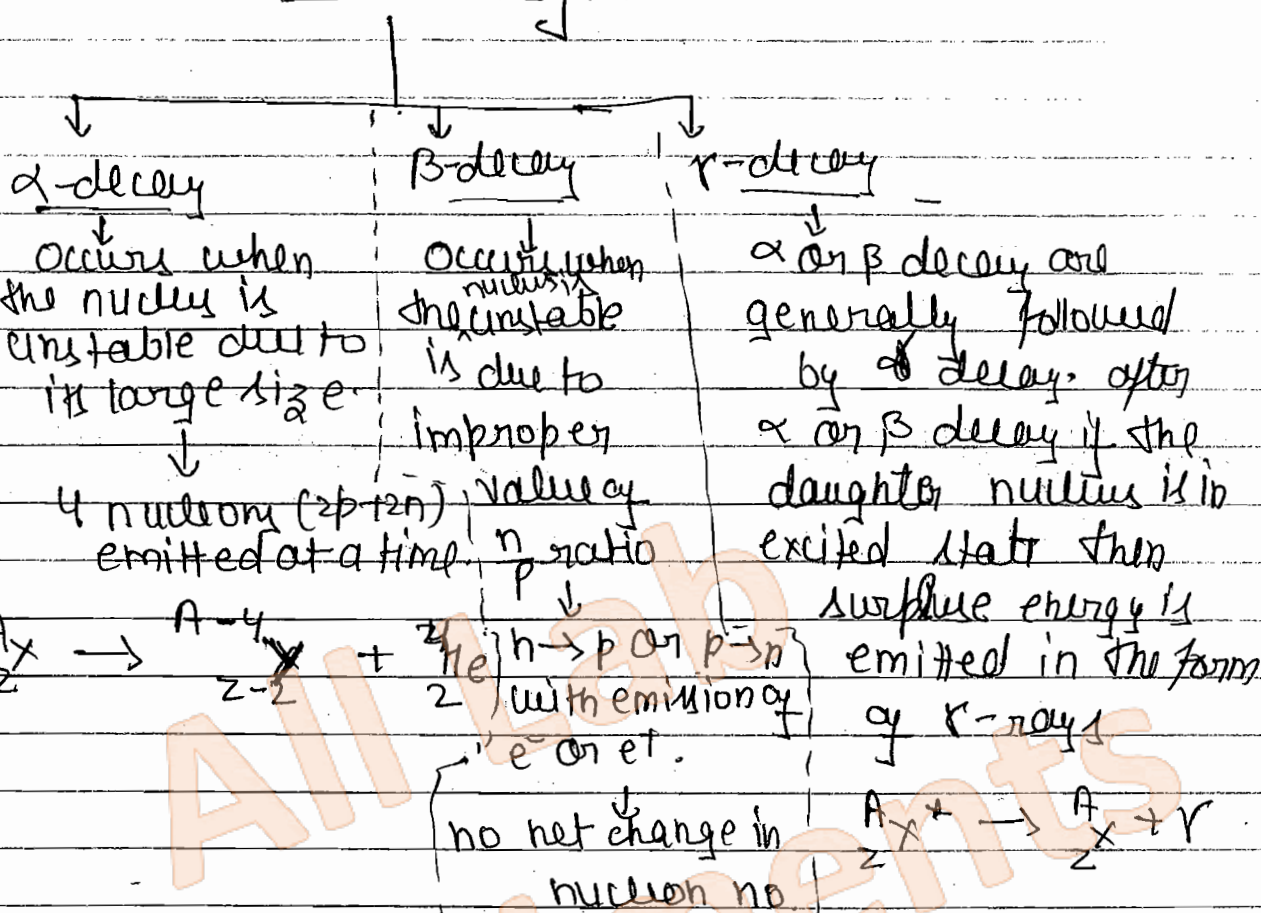 α-decay
occurs when
the nucleus is
unstable due to
its large size.
4 nucleons (2p+2n)
emitted at a time.
A Z X → A-4 Z-2 Y + 4 2 He
β-decay
occurs when
nucleus is
the unstable
is due to
improper
value of
n/p ratio
n → p or p → n
with emission of
e⁻ or e⁺.
no net change in
nucleon no.
γ-decay
α or β decay are
generally followed
by γ decay. after
α or β decay if the
daughter nucleus is in
excited state then
surpluse energy is
emitted in the form
of γ-rays
A Z X* → A Z X + γ
All Lab